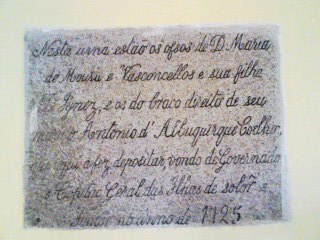 Nesta urna estão os ossos de D. Maria
de Moura e Vasconcellos e sua filha
Ignez, e os do braço direito de seu
Antonio d' Albuquerque Coelho,
aqui fez depositar, vindo de Governador
e Capitão Geral das Ilhas de Solôr e
Timor no anno de 1725